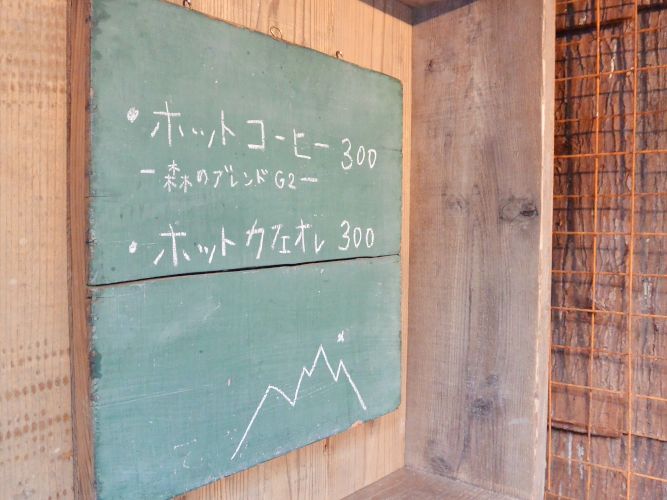 ・ホットコーヒー 300
ー森のブレンドG2ー
・ホットカフェオレ 300